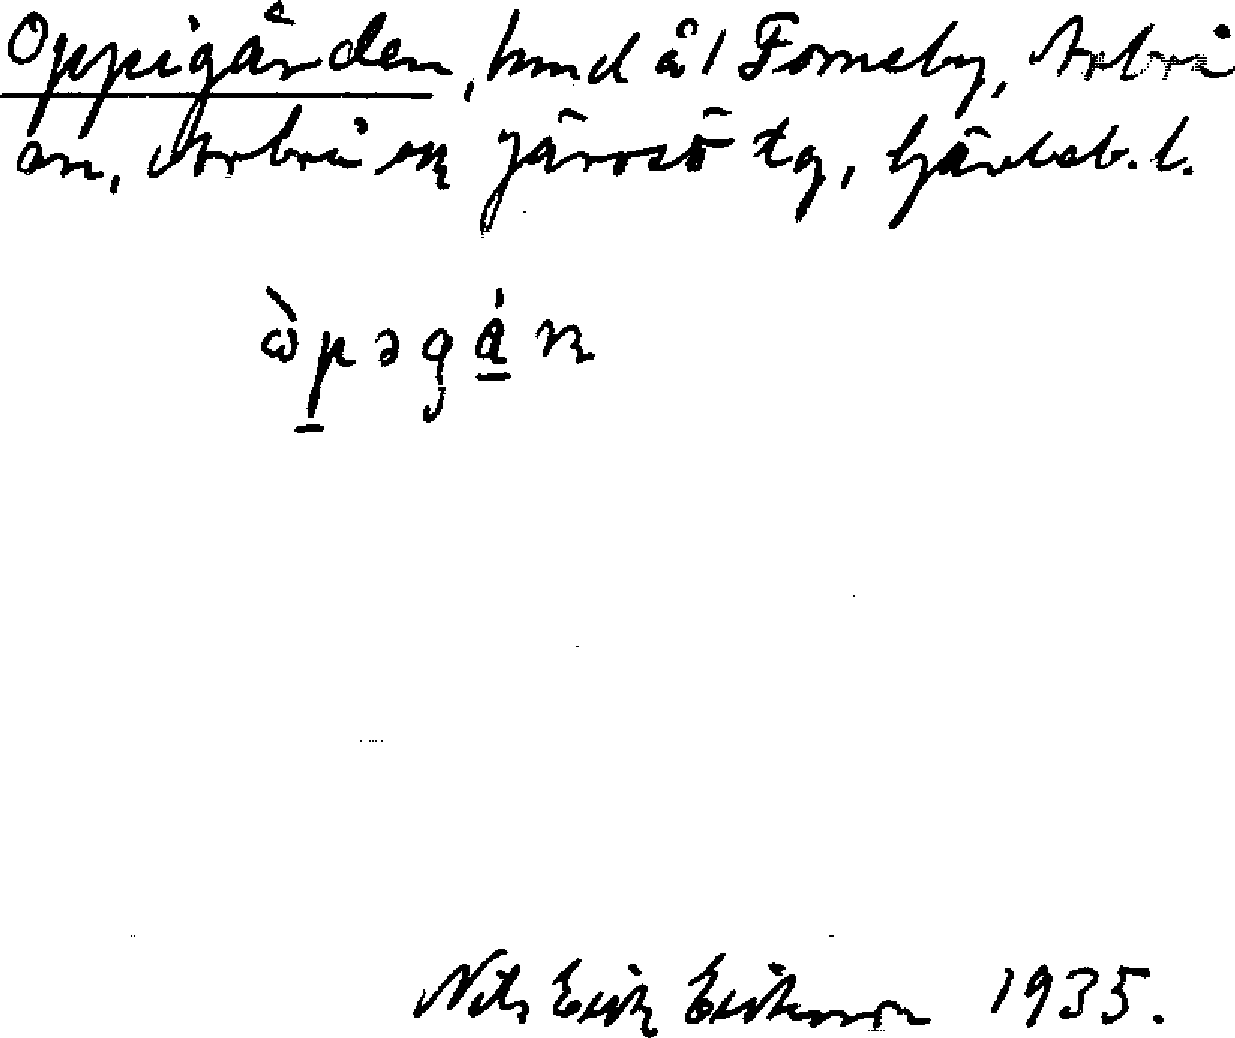 Oppigården, hmd å 1 Forneby, Arbrå
sn, Arbrå ok Järvsö tg, Gävleb. l.
ὼpəgán
Nils Erik Eriksson 1935.